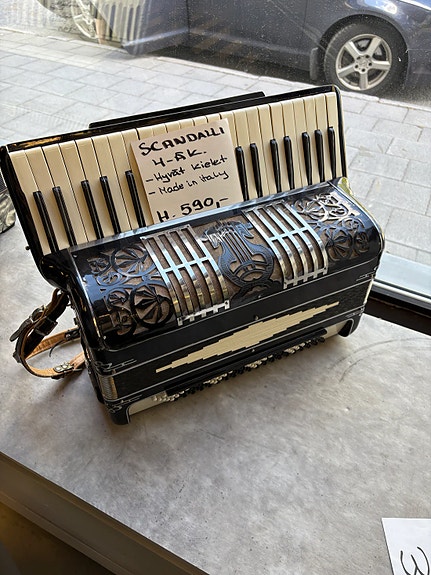 SCANDALLI
4-ÄK.
- Hyvät kielet
- Made in Italy
H. 590,-
3